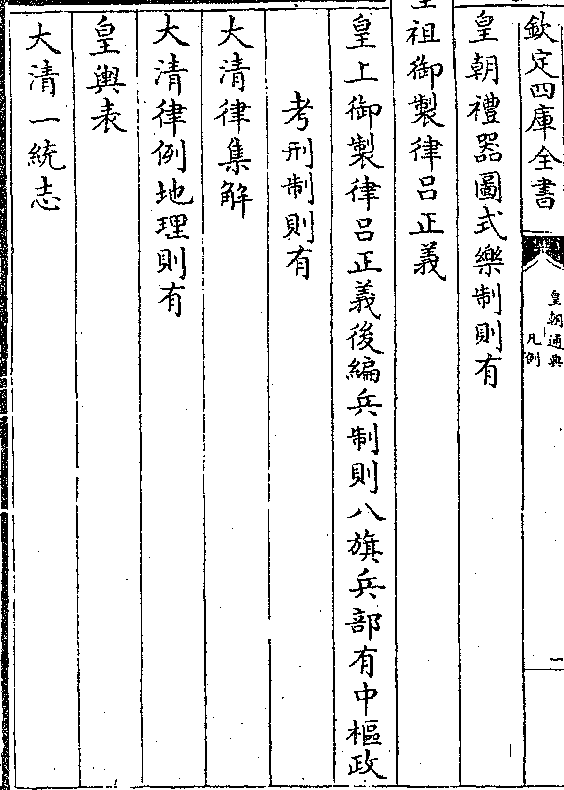 欽定四庫全書
皇朝通典
凡例
皇朝禮器圖式樂制則有
聖祖御製律呂正義
皇上御製律呂正義後編兵制則八旗兵部有中樞政
考刑制則有
大清律集解
大清律例地理則有
皇輿表
大清一統志